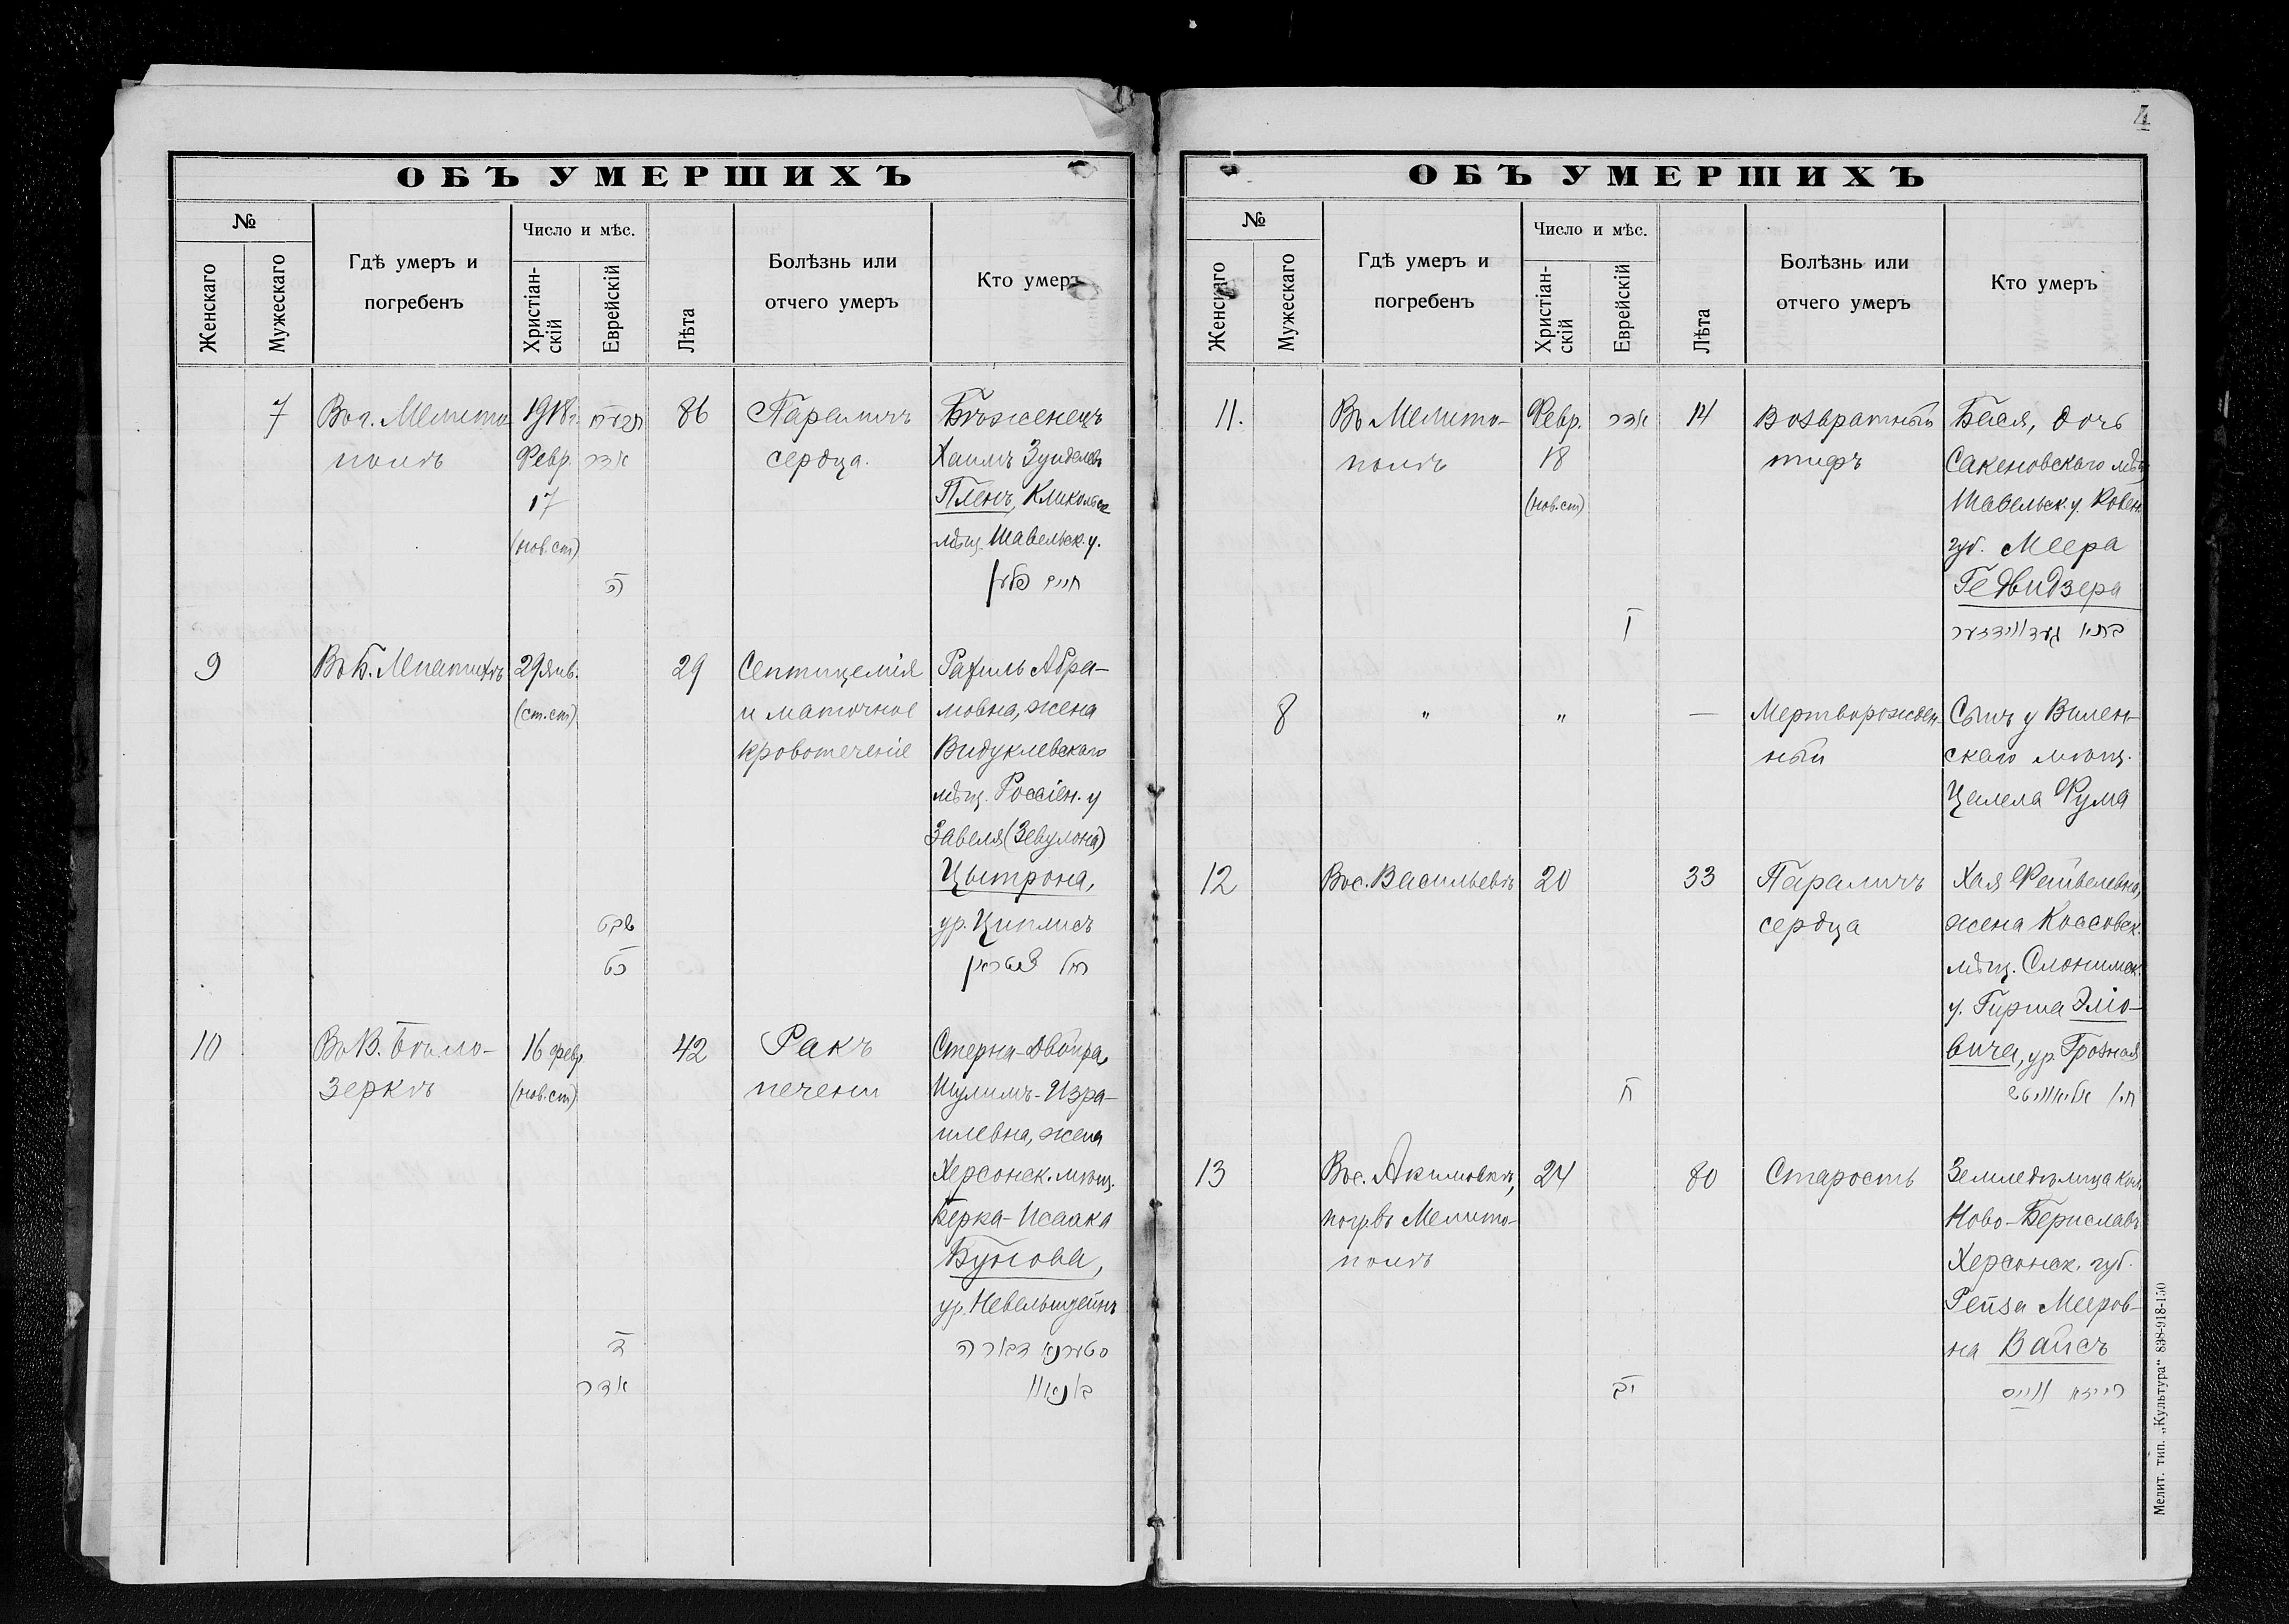 4
ОБЪ УМЕРШИХЪ
№
Женскаго
Мужескаго
Гдѣ умеръ и
погребенъ
Число и мѣс.
Христіан-
скій
Еврейскій
Лѣта
Болѣзнь или
отчего умеръ
Кто умеръ
7
Въ г. Мелито-
полѣ
1918 г.
Февр.
17
(нов. ст)
תרעח
אדר
ה
86
Параличъ
сердца.
Бѣженецъ
Хаимъ Зунделевъ
Пленъ, Кликольск
мѣщ. Шавельск. у.
חיים פלען
9
Въ Б. Лепатихѣ
29 янв.
(ст. ст)
שבט
כט
29
Септицемія
и маточное
кровотеченіе
Рахиль Абра-
мовна, жена
Видуклевскаго
мѣщ. Россіен. у
Завеля (Зевулона)
Цытрона,
ур. Циплисъ
רחל ציטרין
10
Въ В. Бѣло-
зеркѣ
16 февр
(нов. ст)
ד
אדר
42
Ракъ
печени
Стерна-Двойра
Шулимъ-Изра-
илевна, жена
Херсонск. мѣщ.
Берка-Исаака
Бунова,
ур. Невельштейнъ
סטערנא דבורה
בונאוו
ОБЪ УМЕРШИХЪ
№
Женскаго
Мужескаго
Гдѣ умеръ и
погребенъ
Число и мѣс.
Христіан-
скій
Еврейскій
Лѣта
Болѣзнь или
отчего умеръ
Кто умеръ
11.
Въ Мелито-
полѣ
Февр.
18
(нов. ст)
אדר
ו
14
Возвратный
тифъ
Бася, дочь
Сакеновскаго мѣщ
Шавельск. у. Ковен
губ. Меера
Гедвидзера
באסיא געדווידזער
8
"
"
—
Мертворожден-
ный
Сынъ у Вилен-
скаго мѣщ.
Цалела Фума
12
Въ с. Васильевкѣ
20
ח
33
Параличъ
сердца
Хая Файвелевна,
жена Коссовск.
мѣщ. Слонимск.
у. Гирша Эліо-
вича, ур. Грозная
חיה אליאוויטש
13
Въ с. Акимовкѣ,
погр. въ Мелито-
полѣ
24
יב
80
Старость
Земледѣлица кол.
Ново-Бериславъ
Херсонск. губ.
Рейза Мееров-
на Вайсъ
רייזא ווייס
Мелит. тип. „Культура" 838-918-150